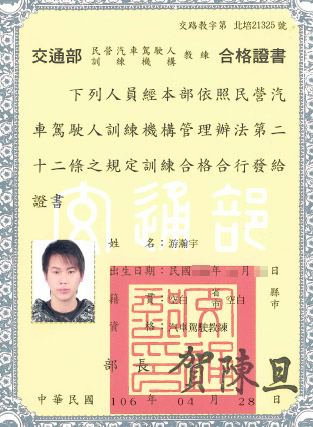 交路教字第 北培21325號
交通部 民營汽車駕駛人訓練機構 教練 合格證書
下列人員經本部依照民營汽
車駕駛人訓練機構管理辦法第二
十二條之規定訓練合格合行發給
證書
交通部
姓名：游瀚宇
出生日期：民國 年 月 日
籍貫：空白 省市 空白 縣市
資格：汽車駕駛教練
部長 賀陳旦
中華民國 106 年 04 月 28 日